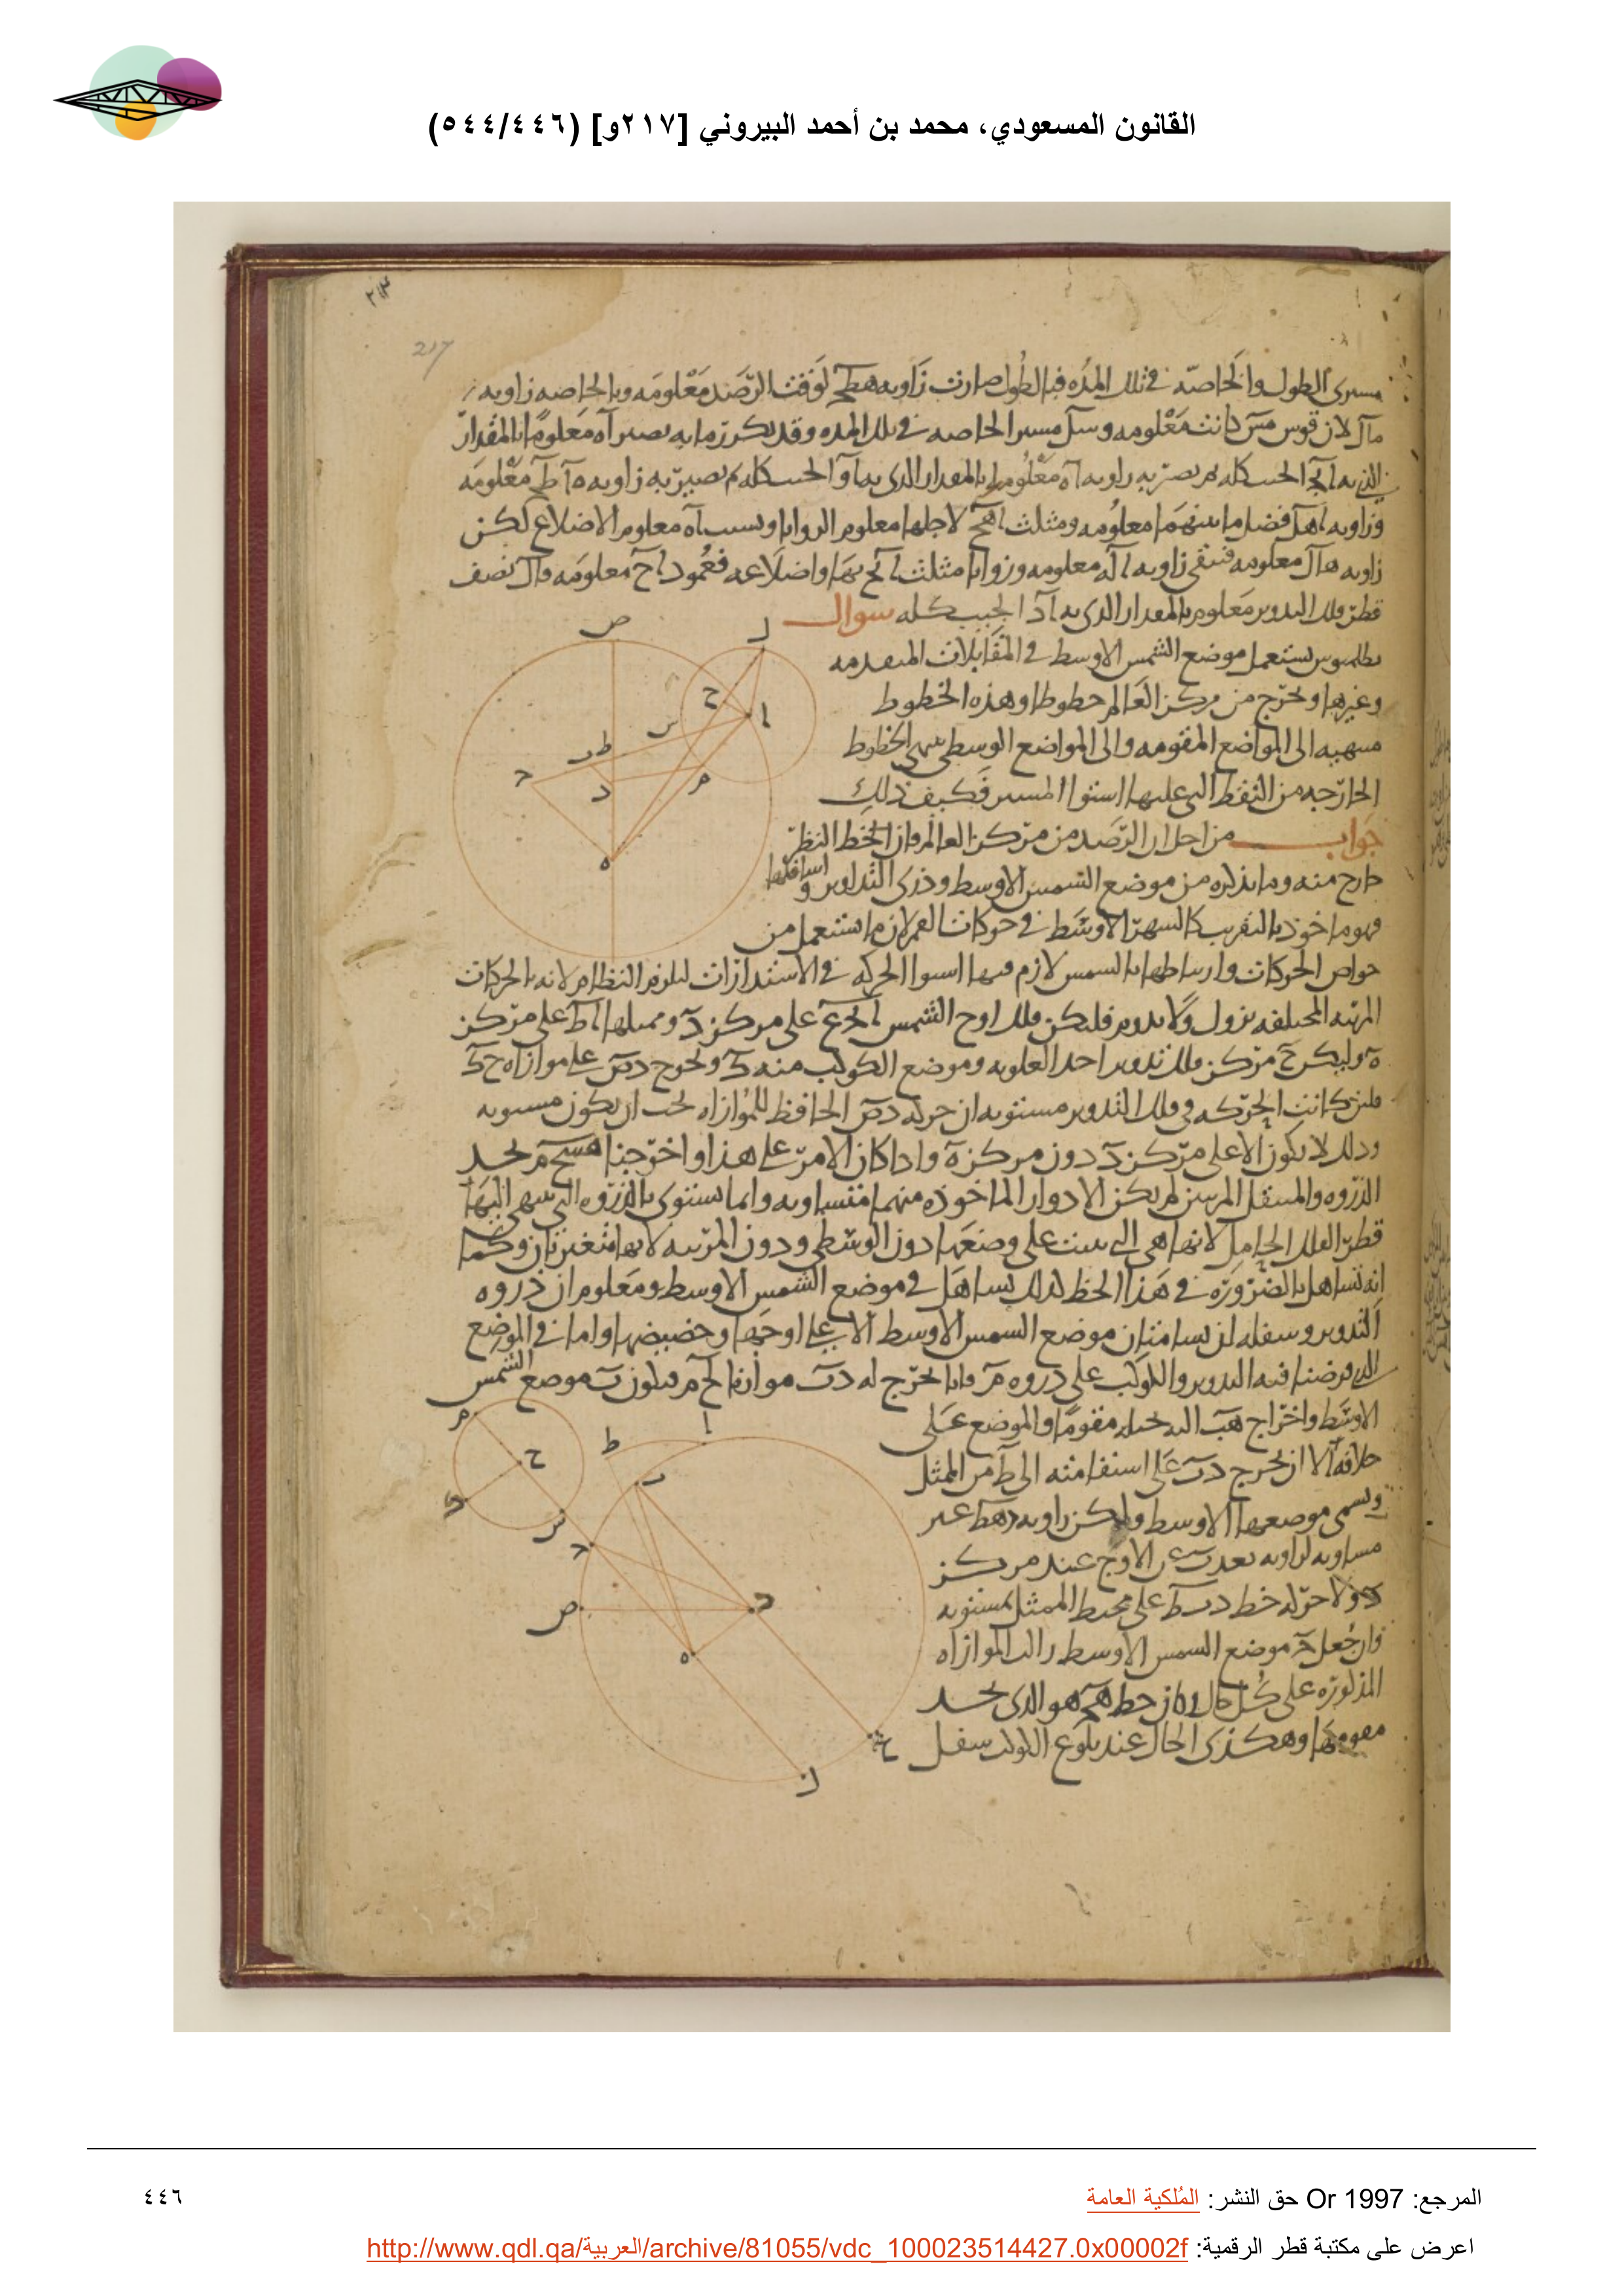 القانون المسعودي، محمد بن أحمد البيروني [٢١٧و] (٥٤٤/٤٤٦)
217
مسيرى الطول والخاصه فى تلك المده فبالطول صارت زاويه لوقت الرصد معلومه وبالخاصه زاويه
لان قوس كانت معلومه مسير الخاصه فى تلك المده وقد تكرر ما به يصير اه معلوما بالمقدار
الذى به الجيب كله ثم نصير به زاويه معلومه بالمقدار الذى به الجيب كله ثم نصير به زاويه معلومه
وزاويه فضل ما بينهما معلومه ومثلث لاجلها معلوم الزوايا وبسبب اه معلوم الاضلاع لكن
زاويه معلومه فتبقى زاويه معلومه وزوايا مثلث بها واضلاعه فعمود اح معلومه وال نصف
قطر فلك التدوير معلوم بالمقدار الذى به اد الجيب كله سوال
بطلميوس يستعمل موضع الشمس الاوسط فى المقابلات المتقدمه
وغيرها ويخرج من مركز العالم خطوطا وهذه الخطوط
منتهيه الى المواضع المقومه والى المواضع الوسطى ينتهى الخطوط
الخارجه من النقط التى عليها استوا المسير فكيف ذلك
جواب من اجل ان الرصد من مركز العالم فان الخط النظر
خارج منه وما يذكره من موضع الشمس الاوسط وذرى التداوير واسافلها
فهو ماخوذ بالتقريب كالشهر الاوسط فى حركات القمر لان ما استعمل من
خواص الحركات وارتباطها بالشمس لازم فيها استوا الحركه فى الاستدارات ليلزم النظام لانه بالحركات
المرئيه المختلفه يزول ولا يدوم فليكن فلك اوج الشمس على مركز د وممثلها اط على مركز
ه وليكن ح مركز فلك تدوير احد العلويه وموضع الكوكب منه ك ونخرج دص على موازاه ح ك
فلئن كانت الحركه فى فلك التدوير مستويه ان حركه دص الحافظ للموازاه يجب ان يكون مستويه
وذلك لا يكون الا على مركز د دون مركز ه واذا كان الامر على هذا واخرجنا لحد
الذروه والسفل المرئيين لم يكن الادوار الماخوذه منهما متساويه وانما يستوى بالذروه التى ينتهى اليها
قطر الفلك الحامل لانها هى التى ثبتت على وضعها دون الوسطى ودون المرئيه لانهما متغيرتان وكما
انه تساهل بالضروره فى هذا الخط كذلك تساهل فى موضع الشمس الاوسط ومعلوم ان ذروه
التدوير وسفله لن يسامتان موضع الشمس الاوسط الا على اوجها وحضيضها واما فى الموضع
الذى فرضنا فيه التدوير والكوكب على ذروه م فانا نخرج له دب موازيا فيكون ب موضع الشمس
الاوسط واخراج هب مقوما والموضع على
خلافه الا ان يخرج دب على استقامته الى ط من الممثل
ويسمى موضعها الاوسط وليكن زاويه غير
مساويه لزاويه بعد ب عن الاوج عند مركز
د ولا حركه خط دب ط على محيط الممثل بمستويه
وان جعل موضع الشمس الاوسط زالت الموازاه
المذكوره على كل حال وكان خط هو الذى يحد
مقومها وهكذى الحال عند بلوغ الكوكب سفل
المرجع: Or 1997 حق النشر: المُلكية العامة
٤٤٦
اعرض على مكتبة قطر الرقمية: http://www.qdl.qa/العربية/archive/81055/vdc_100023514427.0x00002f